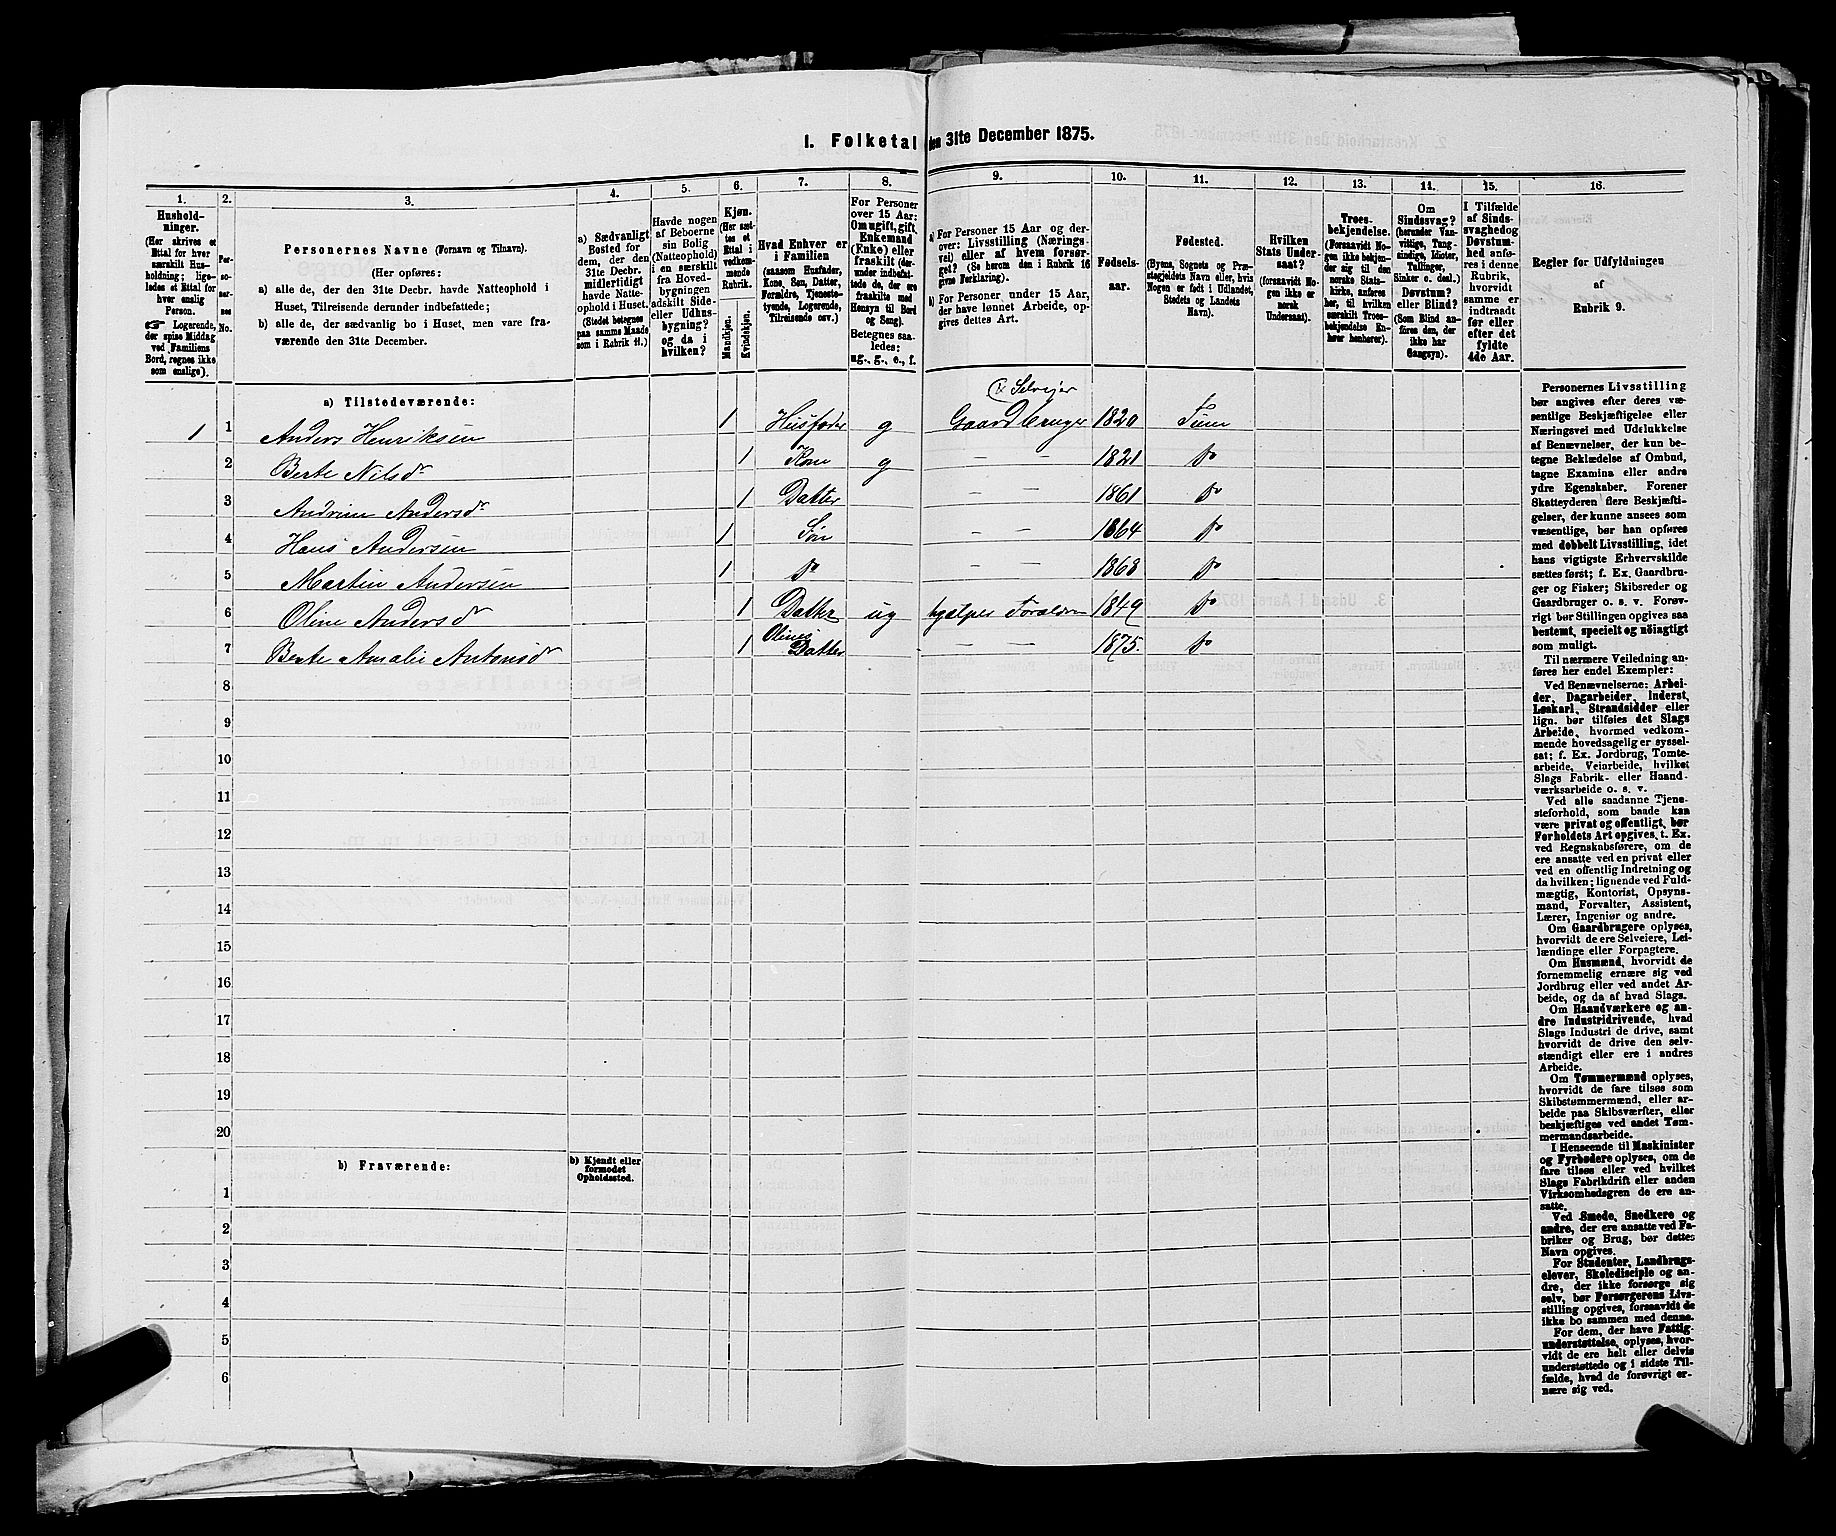 1. Folketal den 31te December 1875.
1.
2.
3.
4.
5.
6.
7.
8.
9.
10.
11.
12.
13.
14.
15.
16.
Hushold-
ninger.
(Her skrives et
Ettal for hver
særskilt Hus-
holdning; lige-
ledes et Ettal for
hver enslig
Person.
☞ Logerende,
der spise Middag
ved Familiens
Bord, regnes ikke
som enslige).
Per-
so-
ner-
nes
No.
Personernes Navne (Fornavn og Tilnavn).
(Her opføres:
a) alle de, der den 31te Decbr. havde Natteophold i
Huset, Tilreisende derunder indbefattede;
b) alle de, der sædvanlig bo i Huset, men vare fra-
værende den 31te December.
a) Sædvanligt
Bosted for
dem, der den
31te Decbr.
midlertidigt
havde Natte-
ophold i Huset.
(Stedet betegnes
paa samme Maade
som i Rubrik 11.)
Havde nogen
af Beboerne
sin Bolig
(Natteophold)
i en særskilt
fra Hoved-
bygningen
adskilt Side-
eller Udhus-
bygning?
og da i
hvilken?
Kjøn.
(Her sæt-
tes et
Ettal i
vedkom-
mende
Rubrik.
Mandkjøn.
Kvindekjøn.
Hvad Enhver er
i Familien
(saasom Husfader,
Kone, Søn, Datter,
Forældre, Tjeneste-
tyende, Logerende,
Tilreisende osv.)
For Personer
over 15 Aar:
Om ugift, gift,
Enkemand
(Enke) eller
fraskilt (der-
under indbefat-
tede de, der ere
fraskilte med
Hensyn til Bord
og Seng).
Betegnes saa-
ledes:
ug., g., e., f.
a) For Personer 15 Aar og der-
over: Livsstilling (Nærings-
vei) eller af hvem forsør-
get? (Se herom den i Rubrik 16
givne Forklaring).
b) For Personer under 15 Aar,
der have lønnet Arbeide, op-
gives dettes Art.
Fødsels-
aar.
Fødested.
(Byens, Sognets og Præ-
stegjeldets Navn eller, hvis
Nogen er født i Udlandet,
Stedets og Landets
Navn).
Hvilken
Stats Under-
saat?
(forsaavidt No-
gen ikke er
norsk
Undersaat).
Troes-
bekjendelse.
(Forsaavidt No-
gen ikke bekjen-
der sig til den
norske Stats-
kirke, anføres
her, til hvilken
særskilt Troes-
bekjendelse En-
hver henhører).
Om
Sindssvag?
(herunder Van-
vittige, Tung-
sindige, Idioter,
Tullinger,
Sinker o. desl.)
Døvstum?
eller Blind?
(Som Blind an-
føres den, der
ikke har
Gangsyn).
I Tilfælde
af Sinds-
svaghed og
Døvstum-
hed anfø-
res i denne
Rubrik,
hvorvidt
samme er
indtraadt
før eller
efter det
fyldte
4de Aar.
Regler for Udfyldningen
af
Rubrik 9.
a) Tilstedeværende:
Selvejer
1 1 Anders Henriksen 1 Husfader g Gaardbruger 1820 Tune
2 Berte Nilsdr 1 Kone g — — 1821 do
3 Andrine Andersdr 1 Datter — — 1861 do
4 Hans Andersen 1 Søn — 1864 do
5 Martin Andersen 1 do — 1868 do
6 Oline Andersdr 1 Datter ug hjelper Forældrene 1849 do
7 Berte Amalie Antonsdr 1 Olines Datter — — 1875. do
8
9
10
11
12
13
14
15
16
17
18
19
20
b) Fraværende:
b) Kjendt eller
formodet
Opholdssted.
1
2
3
4
5
6
Personernes Livsstilling
bør angives efter deres væ-
sentlige Beskjæftigelse eller
Næringsvei med Udelukkelse
af Benævnelser, der kun be-
tegne Beklædelse af Ombud,
tagne Examina eller andre
ydre Egenskaber. Forener
Skatteyderen flere Beskjæfti-
gelser, der kunne ansees som
væsentlige, bør han opføres
med dobbelt Livsstilling, idet
hans vigtigste Erhvervskilde
sættes først; f. Ex. Gaardbru-
ger og Fisker; Skibsreder og
Gaardbruger o. s. v. Forøv-
rigt bør Stillingen opgives saa
bestemt, specielt og nøiagtigt
som muligt.
Til nærmere Veiledning an-
føres her endel Exempler:
Ved Benævnelserne: Arbei-
der, Dagarbeider, Inderst,
Løskarl, Strandsidder eller
lign. bør tilføies det Slags
Arbeide, hvormed vedkom-
mende hovedsagelig er syssel-
sat; f. Ex. Jordbrug, Tomte-
arbeide, Veiarbeide, hvilket
Slags Fabrik- eller Haand-
værksarbeide o. s. v.
Ved alle saadanne Tjene-
steforhold, som baade kan
være privat og offentligt, bør
Forholdets Art opgives, t. Ex.
ved Regnskabsførere, om de
ere ansatte ved en privat eller
ved en offentlig Indretning og
da hvilken; lignende ved Fuld-
mægtig, Kontorist, Opsyns-
mand, Forvalter, Assistent,
Lærer, Ingeniør og andre.
Om Gaardbrugere oplyses,
hvorvidt de ere Selveiere, Lei-
lændinge eller Forpagtere.
Om Husmænd, hvorvidt de
fornemmelig ernære sig ved
Jordbrug eller ved andet Ar-
beide, og da af hvad Slags.
Om Haandværkere og an-
dre Industridrivende, hvad
Slags Industri de drive, samt
hvorvidt de drive den selv-
stændigt eller ere i andres
Arbeide.
Om Tømmermænd oplyses,
hvorvidt de fare tilsøs som
Skibstømmermænd, eller ar-
beide paa Skibsværfter, eller
beskjæftiges ved andet Tøm-
mermandsarbeide.
I Henseende til Maskinister
og Fyrbødere oplyses, om de
fare tilsøs eller ved hvilket
Slags Fabrikdrift eller anden
Virksomhedsgren de ere an-
satte.
Ved Smede, Snedkere og
andre, der ere ansatte ved Fa-
briker og Brug, bør dettes
Navn opgives.
For Studenter, Landbrugs-
elever, Skoledisciple og an-
dre, der ikke forsørge sig
selv, bør Forsørgerens Livs-
stilling opgives, forsaavidt de
ikke bo sammen med denne.
For dem, der have Fattig-
understøttelse, oplyses, hvor-
vidt de ere helt eller delvis
understøttede og i sidste Til-
fælde, hvad de forøvrigt er-
nære sig ved.